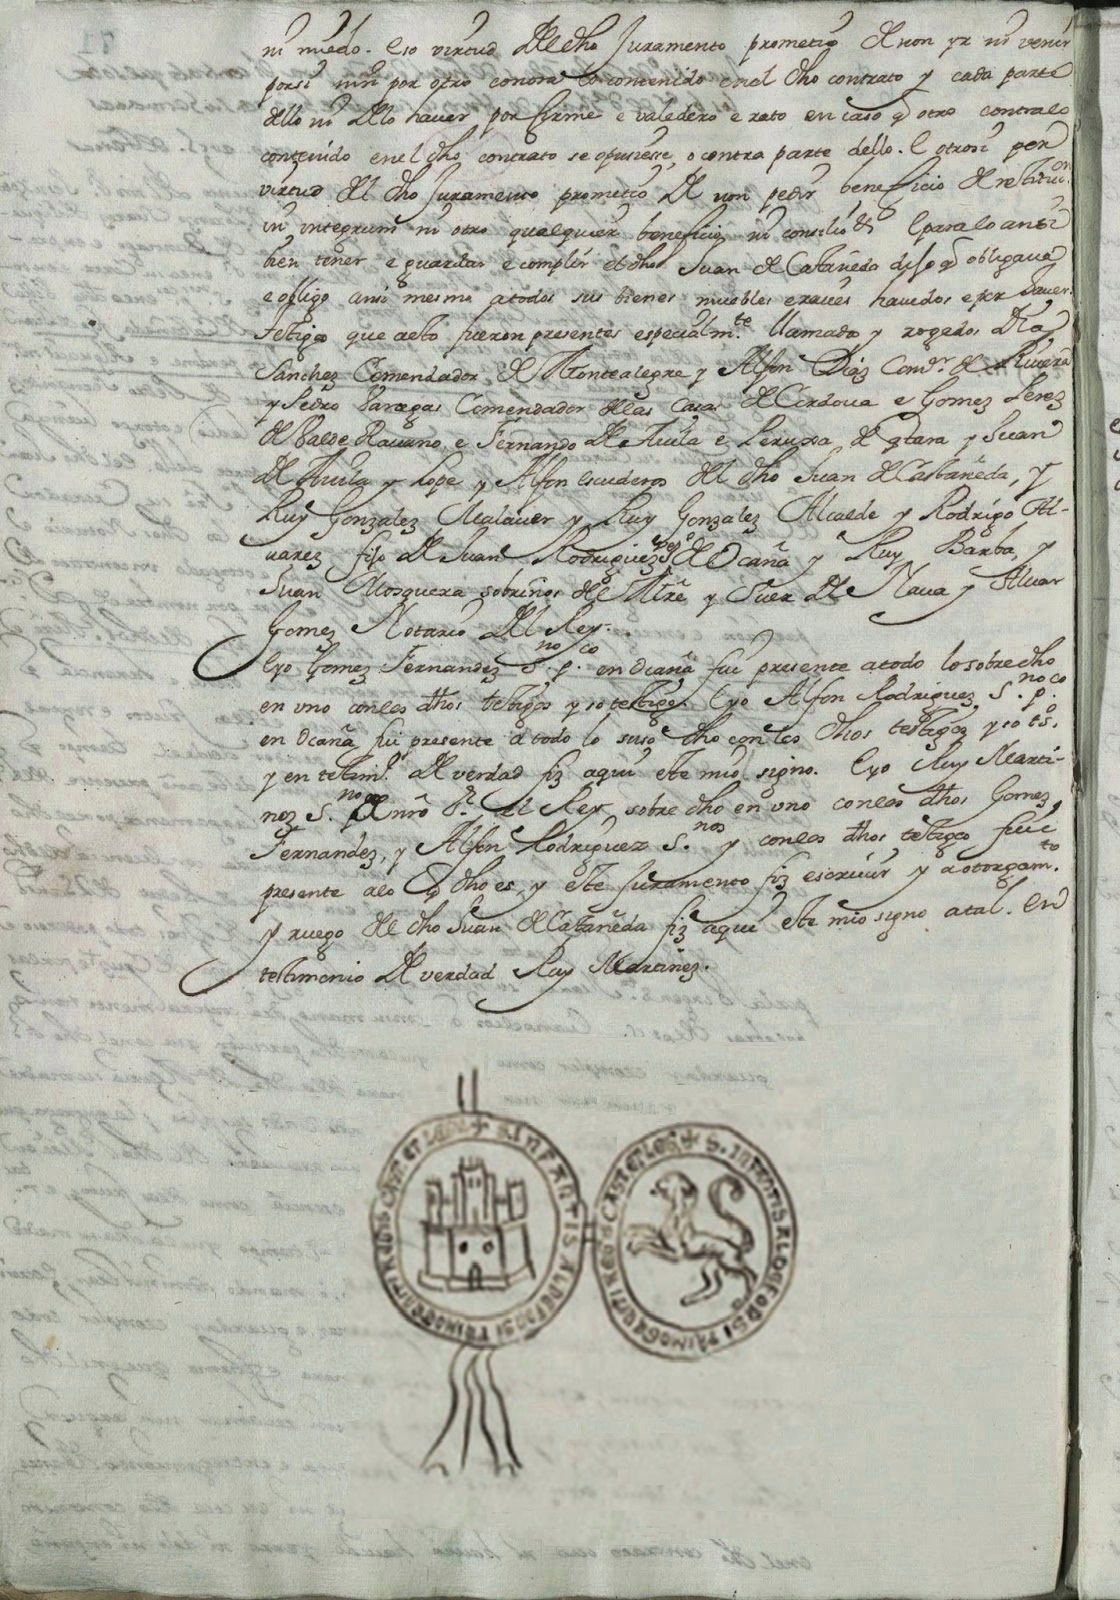 ni miedo. E so virtud del dho Juramento prometio de non yr ni venir
por si nin por otro contra lo contenido en el dho contrato y cada parte
dello ni de lo haver por firme e valedero e rato en caso q otro contra lo
contenido en el dho contrato se opusiesse, o contra parte dello. E otrosi por
virtud del dho Juramento prometio de non pedir beneficio de restituci.on
in integrum ni otro qualquier beneficio ni E para lo ansi
bien tener e guardar e complir el dho Juan de Castañeda dijo q obligava
e obligo ansi mesmo a todos sus bienes muebles e raices havidos e por haver.
Testigos que a esto fueron presentes especialm.te llamados y rogados Dia
Sanchez Comendador de Montealegre y Alfon Diaz Com.r de Rivera
y Pedro Vanegas Comendador de las Casas de Cordova e Gomez Perez
de Valde Ravano e Fernando de Avila e de y Juan
de Avila y Lope y Alfon escuderos del dho Juan de Castañeda, y
Ruy Gonzalez Malaver y Ruy Gonzalez Alcalde y Rodrigo Al-
varez fijo de Juan Rodriguez de Ocaña y Ruy Barba, y
Juan Mosquera sobrinos del Mre y Suer de Nava y Alvar
Gomez Notario del Rey.
E yo Gomez Fernandez S.no p.co en Ocaña fui presente a todo lo sobre dho
en uno con los dhos testigos y so testigo. E yo Alfon Rodriguez S.no p.co
en Ocaña fui presente a todo lo suso dho con los dhos testigos y so t.so
y en testim.o de verdad fiz aqui este mio signo. E yo Ruy Marti-
nez S.no p.co nro S.r el Rey sobre dho en uno con los dhos Gomez
Fernandez, y Alfon Rodriguez S.nos y con los dhos testigos fui
presente a lo q dho es, y este Juramento fiz escrivir y a otorgam.to
y ruego del dho Juan de Castañeda fiz aqui este mio signo a tal. En
testimonio de verdad Ruy Martinez.
+ S. INFANTIS ALDEFONSI PRIMOGENITI REGIS CAST. ET LEGI
+ S. INFANTIS ALDEFONSI PRIMOGENITI REGIS CAST. ET LEGI